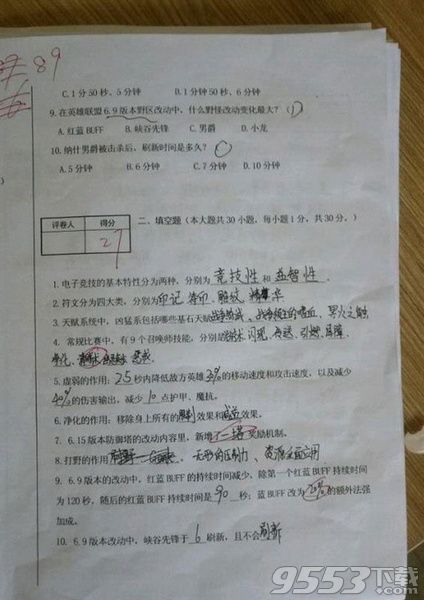 89
C.1分50秒、5分钟 D.1分钟50秒、6分钟
9.在英雄联盟6.9版本野区改动中,什么野怪改动变化最大?( )
A.红蓝BUFF B.峡谷先锋 C.男爵 D.小龙
10.纳什男爵被击杀后,刷新时间是多久?( )
A.5分钟 B.6分钟 C.7分钟 D.10分钟
评卷人 得分
27
二、填空题(本大题共30小题,每小题1分,共30分。)
1.电子竞技的基本特性分为两种,分别为 竞技性 和 益智性.
2.符文分为四大类,分别为印记 符印、雕纹、精华
3.天赋系统中,凶猛系包括哪些基石天赋
4.常规比赛中,有9个召唤师技能,分别是 闪现、传送、引燃、屏障、
净化、
5.虚弱的作用:2.5秒内降低敌方英雄 的移动速度和攻击速度,以及减少
40%的伤害输出,减少10点护甲、魔抗。
6.净化的作用:移除身上所有的 效果和 效果。
7.6.15版本防御塔的改动内容里,新增 一塔奖励机制。
8.打野的作用
9.6.9版本的改动中,红蓝BUFF的持续时间减少,除第一个红蓝BUFF持续时间
为120秒,随后的红蓝BUFF持续时间是 90 秒;蓝BUFF改为 的额外法强
加成。
10.6.9版本改动中,峡谷先锋于 6 刷新,且不会刷新
9553下载
.com